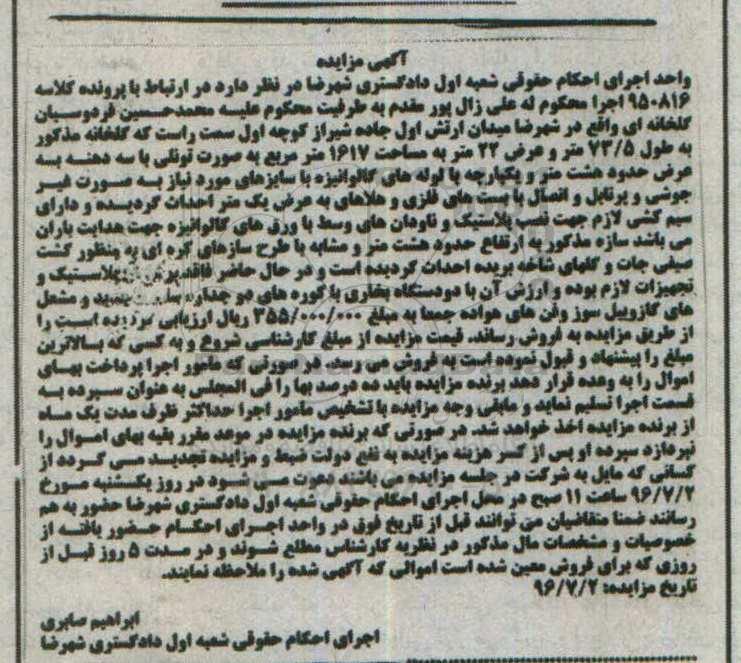 آگهی مزایده
واحد اجرای احکام حقوقی شعبه اول دادگستری شهرضا در نظر دارد در ارتباط با پرونده کلاسه
۹۵۰۸۱۶ اجرا محکوم له علی زال پور مقدم به طرفیت محکوم علیه محمدحسین فردوسیان
گلخانه ای واقع در شهرضا میدان ارتش اول جاده شیراز کوچه اول سمت راست که گلخانه مذکور
به طول ۷۳/۵ متر و عرض ۲۲ متر به مساحت ۱۶۱۷ متر مربع به صورت تونلی با سه دهنه به
عرض حدود هشت متر و یکپارچه با لوله های گالوانیزه با سایزهای مورد نیاز به صورت غیر
جوشی و پرتابل و اتصال با بست های فلزی و هلاهای به عرض یک متر احداث گردیده و دارای
سیم کشی لازم جهت نصب پلاستیک و ناودان های وسط با ورق های گالوانیزه جهت هدایت باران
می باشد سازه مذکور به ارتفاع حدود هشت متر و مشابه با طرح سازهای کره ای به منظور کشت
صیفی جات و گلهای شاخه بریده احداث گردیده است و در حال حاضر فاقد پلاستیک و
تجهیزات لازم بوده و ارزش آن با دودستگاه بخاری با کوره های دو جداره و مشعل
های گازوییل سوز وفن های هواده جمعا به مبلغ ۳۵۵/۰۰۰/۰۰۰ ریال ارزیابی گردیده است را
از طریق مزایده به فروش رساند. قیمت مزایده از مبلغ کارشناسی شروع و به کسی که بالاترین
مبلغ را پیشنهاد و قبول نموده است به فروش می رسد. در صورتی که مامور اجرا پرداخت بهای
اموال را به وعده قرار دهد برنده مزایده باید ده درصد بها را فی المجلس به عنوان سپرده به
قسمت اجرا تسلیم نماید و مابقی وجه مزایده با تشخیص مامور اجرا حداکثر ظرف مدت یک ماه
از برنده مزایده اخذ خواهد شد. در صورتی که برنده مزایده در موعد مقرر بقیه بهای اموال را
نپردازد سپرده او پس از کسر هزینه مزایده به نفع دولت ضبط و مزایده تجدید می گردد از
کسانی که مایل به شرکت در جلسه مزایده می باشند دعوت می شود در روز یکشنبه مورخ
۹۶/۷/۲ ساعت ۱۱ صبح در محل اجرای احکام حقوقی شعبه اول دادگستری شهرضا حضور به هم
رسانند ضمنا متقاضیان می توانند قبل از تاریخ فوق در واحد اجرای احکام حضور یافته از
خصوصیات و مشخصات مال مذکور در نظریه کارشناس مطلع شوند و در مدت ۵ روز قبل از
روزی که برای فروش معین شده است اموالی که آگهی شده را ملاحظه نمایند.
تاریخ مزایده: ۹۶/۷/۲
ابراهیم صابری
اجرای احکام حقوقی شعبه اول دادگستری شهرضا